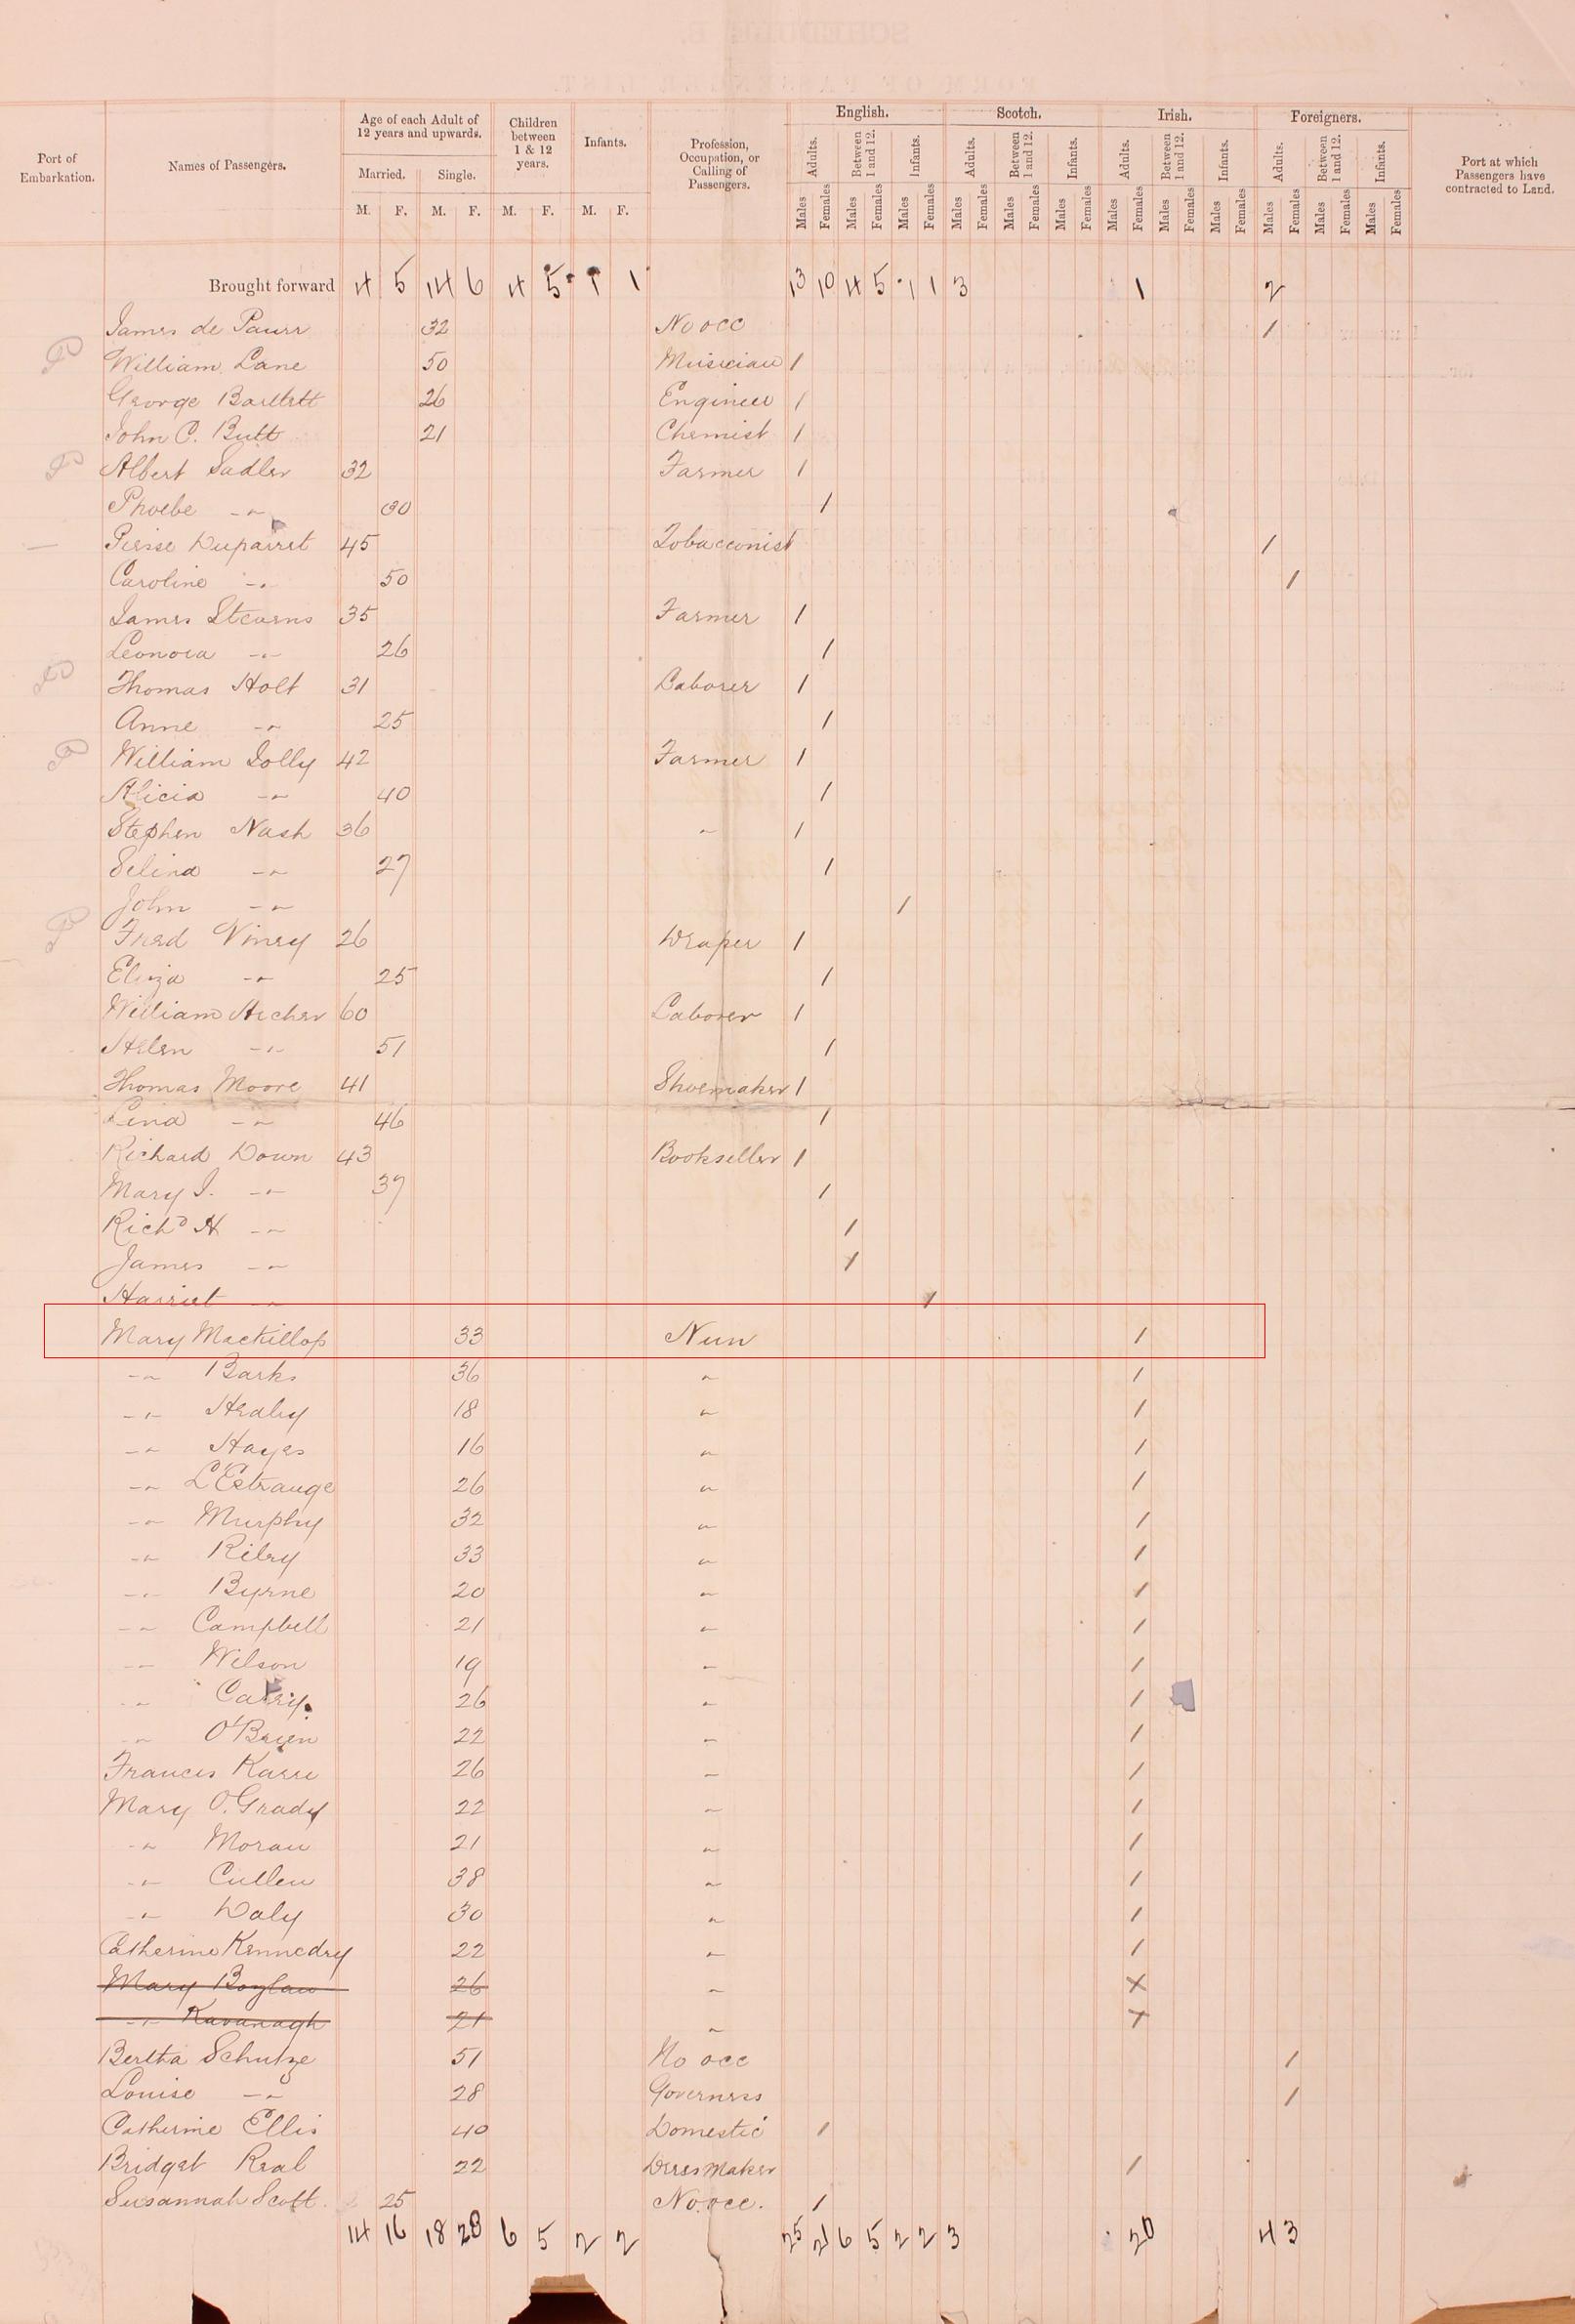 Port of Embarkation. Names of Passengers. Age of each Adult of 12 years and upwards. Children between 1 & 12 years. Infants. Profession, Occupation, or Calling of Passengers. English. Scotch. Irish. Foreigners. Port at which Passengers have contracted to Land.
Married. Single. Adults. Between 1 and 12. Infants. Adults. Between 1 and 12. Infants. Adults. Between 1 and 12. Infants. Adults. Between 1 and 12. Infants.
M. F. M. F. M. F. M. F. Males Females Males Females Males Females Males Females Males Females Males Females Males Females Males Females Males Females Males Females Males Females Males Females
Brought forward 4 5 14 6 4 5 1 1 13 10 4 5 1 1 3 1 2
James de 32 No occ 1
P William Lane 50 Musician 1
George Bartlett 26 Engineer 1
John C. Butt 21 Chemist 1
P Albert Sadler 32 Farmer 1
Phoebe -"- 30 1
— Pierre Duparret 45 Tobacconist 1
Caroline -"- 50 1
James Stevens 35 Farmer 1
Leonora -"- 26 1
P Thomas Holt 31 Laborer 1
Anne -"- 25 1
P William Jolly 42 Farmer 1
Alicia -"- 40 1
Stephen Nash 36 " 1
Selina -"- 27 1
John -"- 1
P Fred Viney 26 Draper 1
Eliza -"- 25 1
William Archer 60 Laborer 1
Helen -"- 51 1
Thomas Moore 41 Shoemaker 1
Lina -"- 46 1
Richard Down 43 Bookseller 1
Mary J. -"- 37 1
Richd H -"- 1
James -"- 1
Harriet -"- 1
Mary Mackillop 33 Nun 1
-"- Barks 36 " 1
-"- Healey 18 " 1
-"- Hayes 16 " 1
-"- L'Estrange 26 " 1
-"- Murphy 32 " 1
-"- Riley 33 " 1
-"- Byrne 20 " 1
-"- Campbell 21 " 1
-"- Wilson 19 " 1
-"- 26 " 1
-"- O'Brien 22 " 1
Frances 26 " 1
Mary O'Grady 22 " 1
-"- Moran 21 " 1
-"- Cullen 38 " 1
-"- Daly 30 " 1
Catherine Kennedy 22 " 1
Mary Boylan 26 " X
-"- Kavanagh 21 " X
Bertha Schutze 51 No occ 1
Louise -"- 28 Governess 1
Catherine Ellis 40 Domestic 1
Bridget Real 22 Dressmaker 1
Susannah Scott. 25 No occ. 1
14 16 18 28 6 5 2 2 25 21 6 5 2 2 3 20 4 3